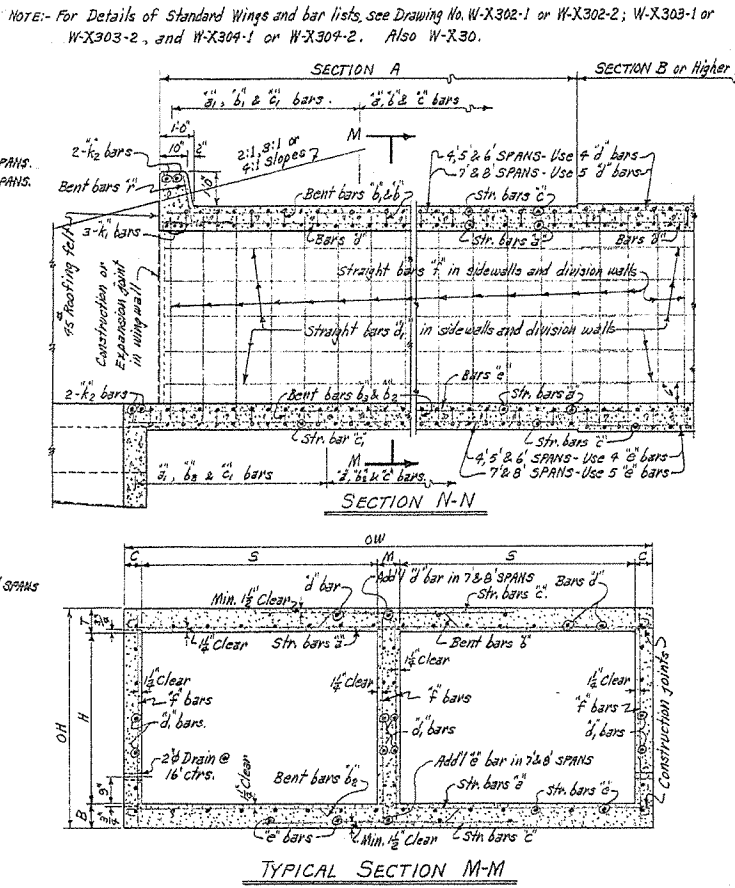 NOTE:- For Details of Standard Wings and bar lists, see Drawing No. W-X302-1 or W-X302-2; W-X303-1 or
W-X303-2, and W-X304-1 or W-X304-2. Also W-X30.
SECTION A
SECTION B or Higher
"a₁", "b₁" & "c₁" bars.
"a", "b" & "c" bars
1'-0"
10"
2"
M
2-"k₂" bars
2:1, 3:1 or
4:1 slopes
4', 5' & 6' SPANS- Use 4 "d" bars
7' & 8' SPANS- Use 5 "d" bars
SPANS.
SPANS.
Bent bars "r"
1'-0"
Bent bars "b₁" & "b"
Str. bars "c"
3-"k₁" bars
Bars "d"
Str. bars "a"
Bars "d"
45# Roofing felt
Construction or
Expansion joint
in wingwall
Straight bars "f" in sidewalls and division walls
Straight bars "d₁" in sidewalls and division walls
Bars "e"
6"
2-"k₂" bars
Bent bars "b₃" & "b₂"
Str. bars "a"
Str. bar "c₁"
Str. bars "c"
M
4', 5' & 6' SPANS- Use 4 "e" bars
7' & 8' SPANS- Use 5 "e" bars
"a₁", "b₃" & "c₁" bars
"a", "b₂" & "c" bars
SECTION N-N
OW
C
S
M
S
C
SPANS
"d" bar
Add'l "d" bar in 7' & 8' SPANS
Bars "d"
Min. 1½" Clear
Str. bars "c".
T
1¼" Clear
Str. bars "a"
Bent bars "b"
1¼" Clear
1¼" Clear
1¼" Clear
1¼" Clear
"f" bars
"f" bars
"f" bars
OH
H
"d₁" bars.
"d₁" bars
"d₁" bars
Construction joints
2"ϕ Drain @
16' ctrs.
Add'l "e" bar in 7' & 8' SPANS
1¼" Clear
Bent bars "b₂"
Str. bars "a"
Str. bars "c"
9"
B
"e" bars
Min. 1½" Clear
Str. bars "c"
TYPICAL SECTION M-M